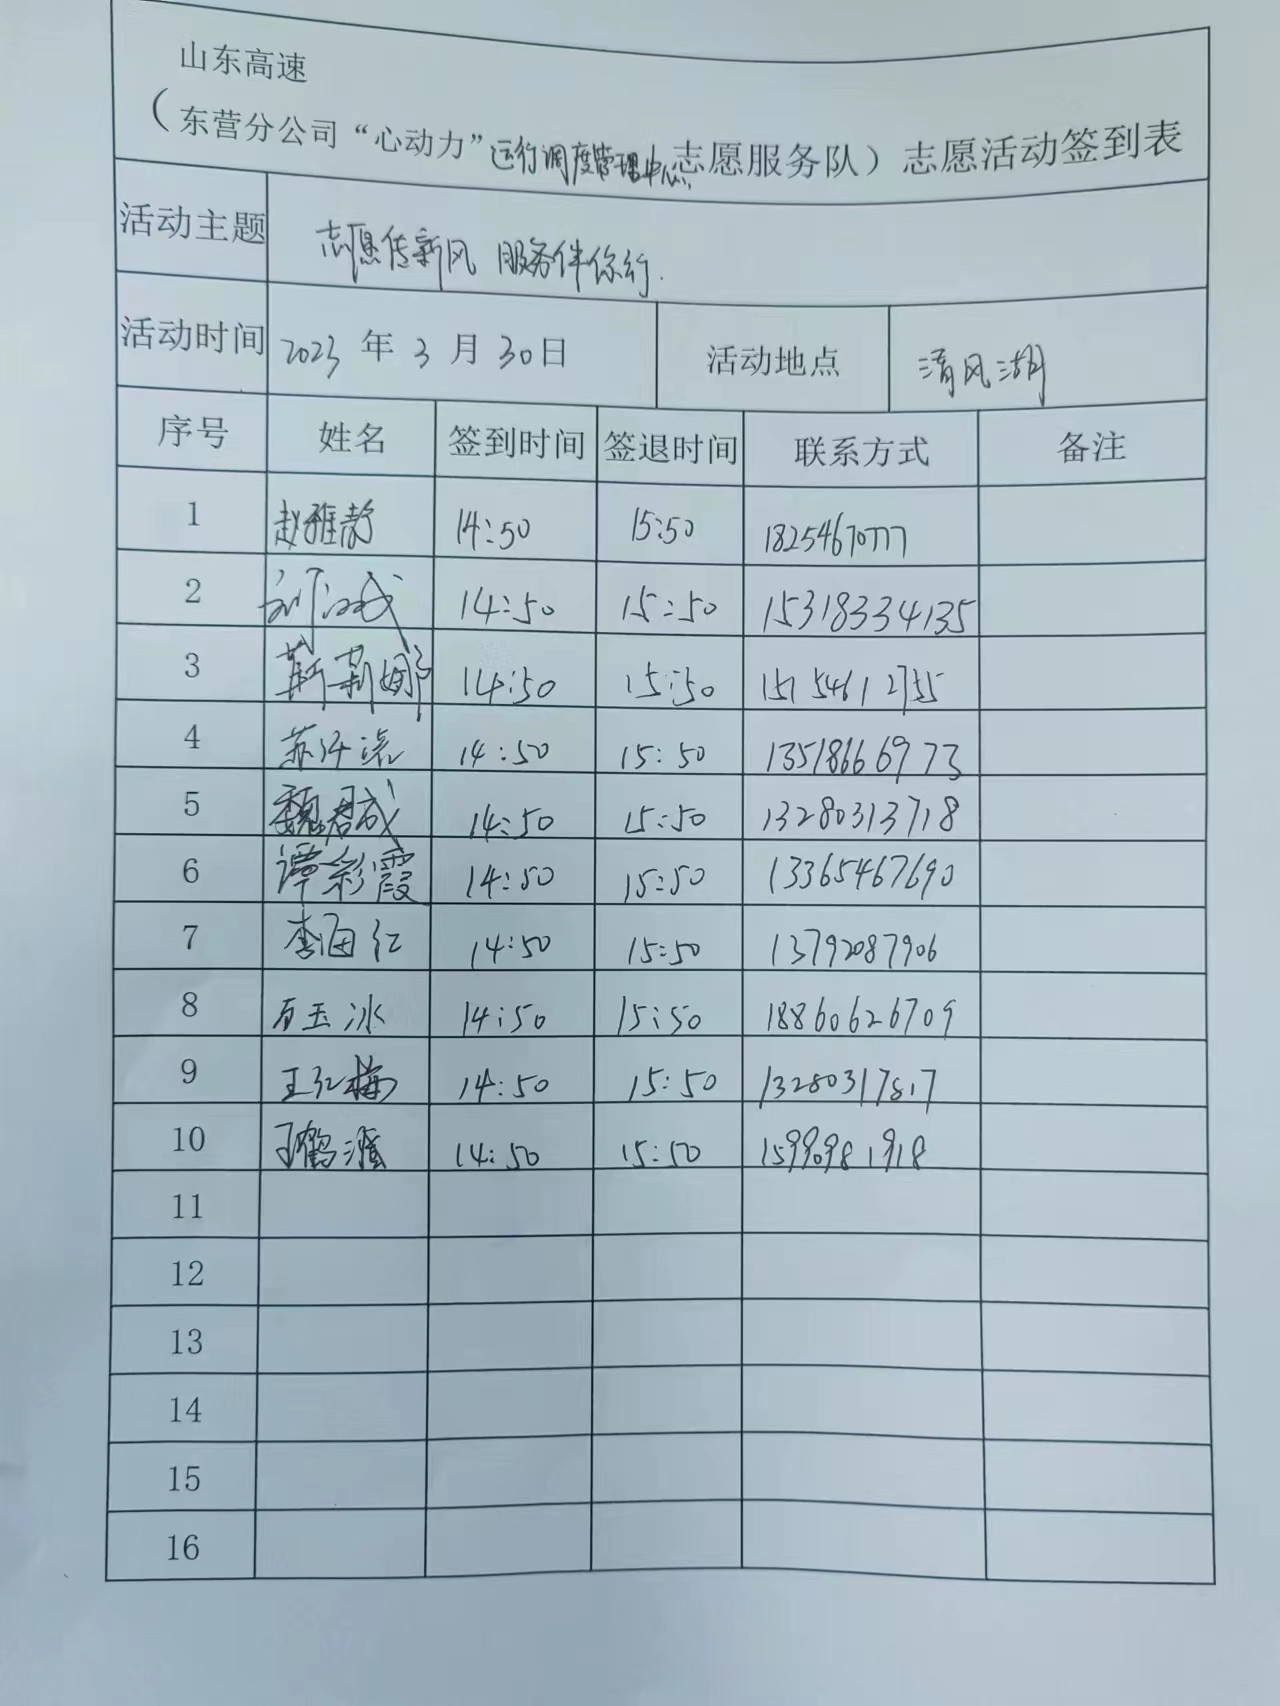 山东高速
（东营分公司“心动力”运行调度管理中心志愿服务队）志愿活动签到表
活动主题 志愿传新风 服务伴你行.
活动时间 2023 年 3 月 30日 活动地点 清风湖
序号 姓名 签到时间 签退时间 联系方式 备注
1 赵雅静 14:50 15:50 18254670777
2 14:50 15:50 15318334135
3 靳莉娜 14:50 15:50 15154612755
4 14:50 15:50 13518666973
5 魏君成 14:50 15:50 13280313718
6 谭彩霞 14:50 15:50 13365467690
7 李海红 14:50 15:50 13792087906
8 石玉冰 14:50 15:50 18860626709
9 王红梅 14:50 15:50 13280317817
10 14:50 15:50 15990981918
11
12
13
14
15
16